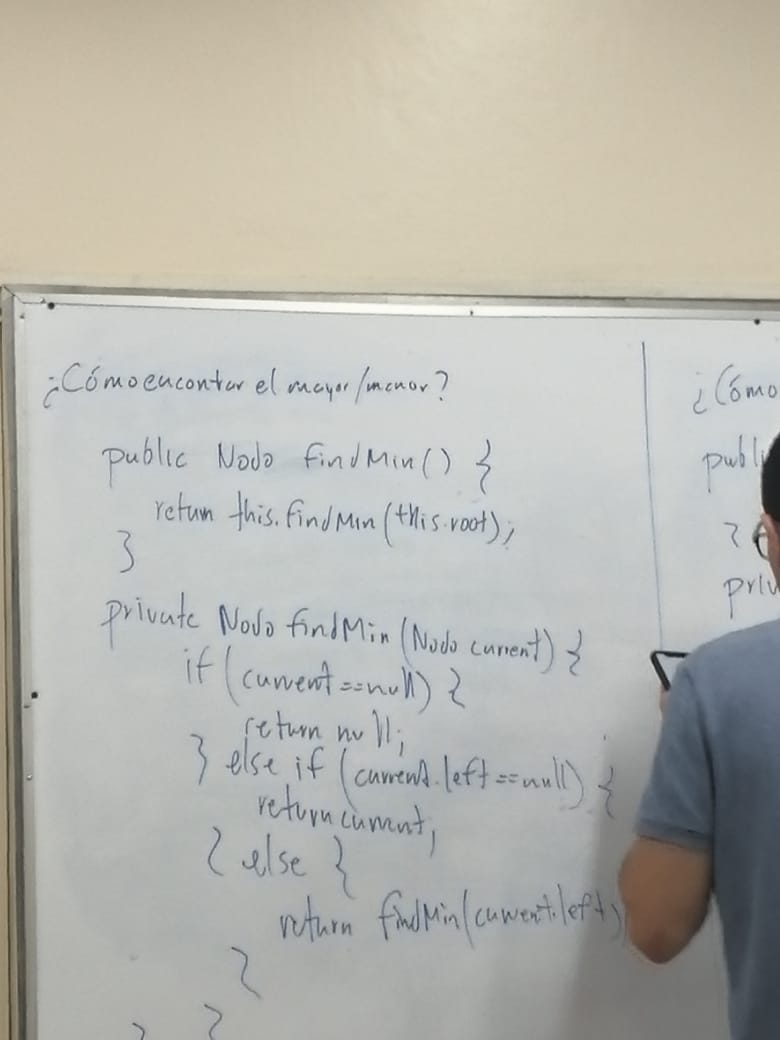 ¿Cómo encontar el mayor/menor?
public Nodo findMin() {
return this.findMin(this.root);
}
private Nodo findMin(Nodo current) {
if (current == null) {
return null;
} else if (current.left == null) {
return current;
} else {
return findMin(current.left)
}
}
}
¿Cómo
publi
}
priv